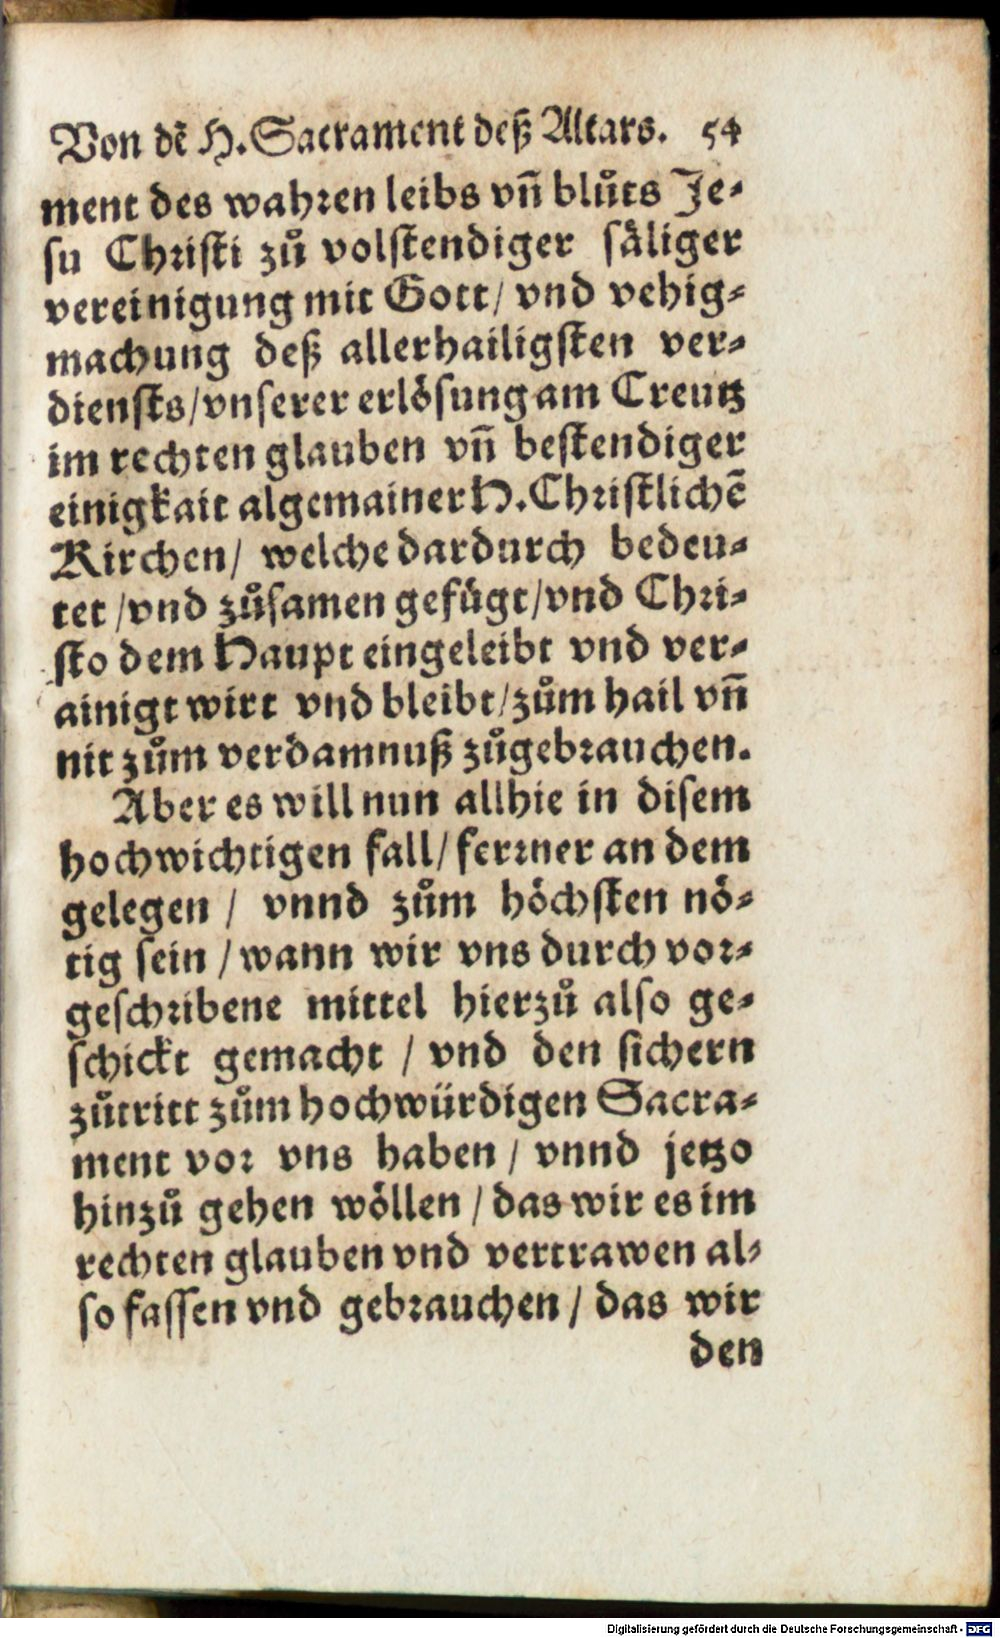 Von dẽ H. Sacrament deß Altars. 54
ment des wahren leibs vñ bluͦts Je-
su Christi zuͦ volstendiger säliger
vereinigung mit Gott/ vnd vehig-
machung deß allerhailigsten ver-
diensts/vnserer erlösung am Creutz
im rechten glauben vñ bestendiger
einigkait algemainer H. Christlichẽ
Kirchen/ welche dardurch bedeu-
tet /vnd zuͦsamen gefügt/vnd Chri-
sto dem Haupt eingeleibt vnd ver-
ainigt wirt vnd bleibt/zuͦm hail vñ
nit zuͦm verdamnuß zuͦgebrauchen.
Aber es will nun allhie in disem
hochwichtigen fall/ ferrner an dem
gelegen / vnnd zuͦm höchsten nö-
tig sein /wann wir vns durch vor-
geschribene mittel hierzuͦ also ge-
schickt gemacht / vnd den sichern
zuͦtritt zuͦm hochwürdigen Sacra-
ment vor vns haben / vnnd jetzo
hinzuͦ gehen wöllen / das wir es im
rechten glauben vnd vertrawen al-
so fassen vnd gebrauchen / das wir
den
Digitalisierung gefördert durch die Deutsche Forschungsgemeinschaft - DFG